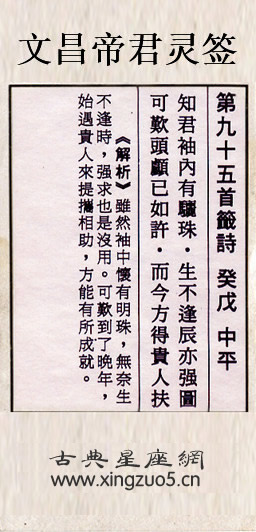 文昌帝君灵签
第九十五首籤詩 癸戊 中平
知君袖內有驪珠·生不逢辰亦强圖
可歎頭顱已如許·而今方得貴人扶
《解析》雖然袖中懷有明珠，無奈生
不逢時，强求也是沒用。可歎到了晚年，
始遇貴人來提攜相助，方能有所成就。
古典星座網
www.xingzuo5.cn